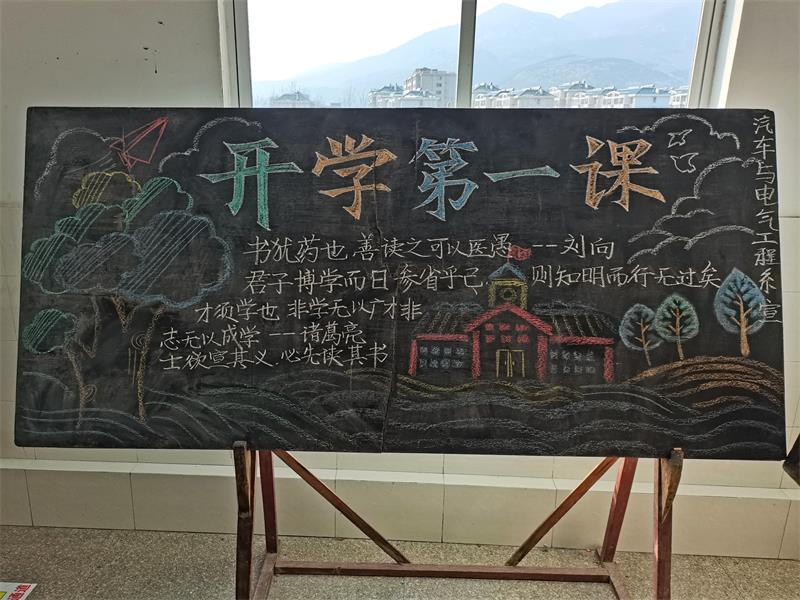 开学第一课
书犹药也 善读之可以医愚 --刘向
君子博学而日参省乎己 则知明而行无过矣
才须学也 非学无以广才非
志无以成学 --诸葛亮
士欲宣其义 必先读其书
汽车与电气工程系宣